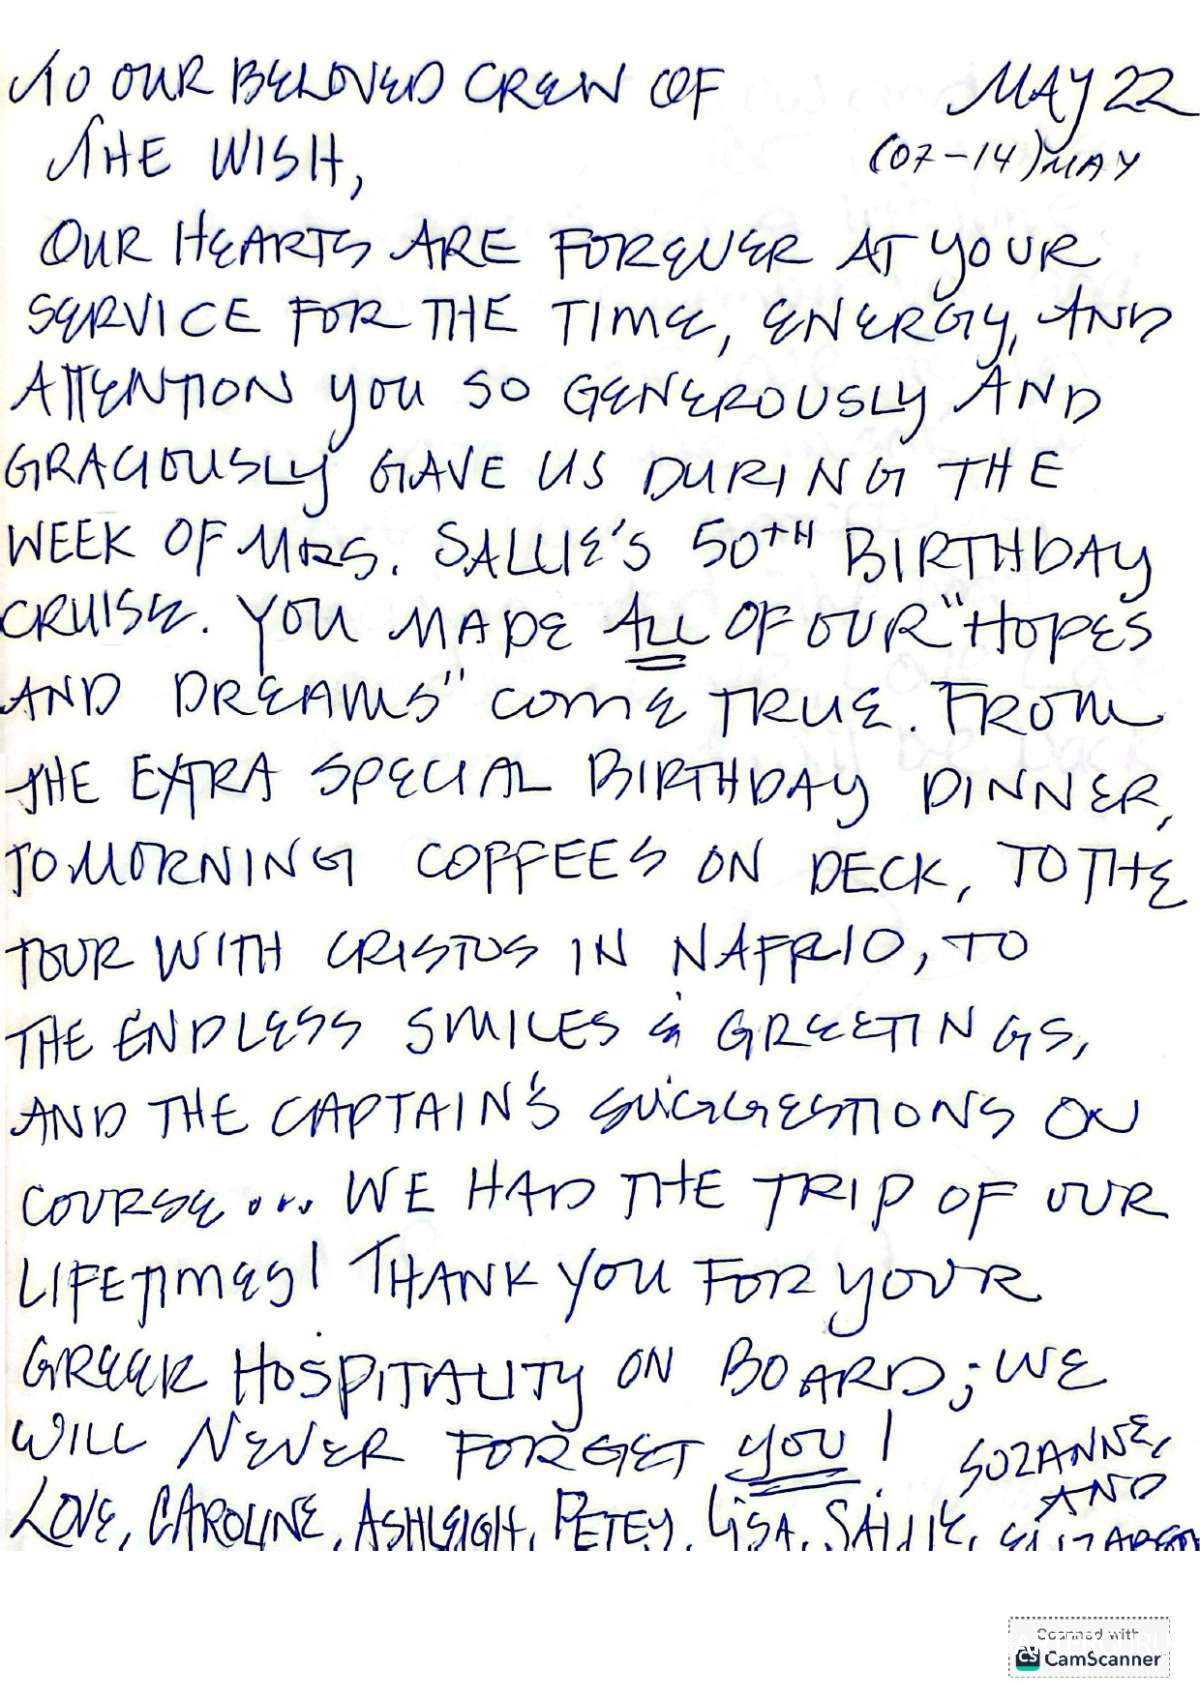 TO OUR BELOVED CREW OF MAY 22
THE WISH, (07-14) MAY
OUR HEARTS ARE FOREVER AT YOUR
SERVICE FOR THE TIME, ENERGY, AND
ATTENTION YOU SO GENEROUSLY AND
GRACIOUSLY GAVE US DURING THE
WEEK OF MRS. SALLIE'S 50TH BIRTHDAY
CRUISE. YOU MADE ALL OF OUR "HOPES
AND DREAMS" COME TRUE. FROM
THE EXTRA SPECIAL BIRTHDAY DINNER,
TO MORNING COFFEES ON DECK, TO THE
TOUR WITH CRISTOS IN NAFRIO, TO
THE ENDLESS SMILES & GREETINGS,
AND THE CAPTAIN'S SUGGESTIONS ON
COURSE... WE HAD THE TRIP OF OUR
LIFETIMES! THANK YOU FOR YOUR
GREEK HOSPITALITY ON BOARD; WE
WILL NEVER FORGET YOU! SUZANNE,
AND
LOVE, CAROLINE, ASHLEIGH, PETEY, LISA, SALLIE,
Scanned with
CS CamScanner